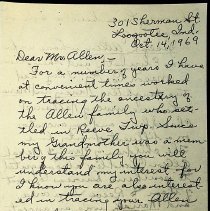 301 Sherman St.
Loogootee, Ind.
Oct. 14, 1969
Dear Mr. Allen:
For a number of years I have
at convenient times worked
on tracing the ancestry of
the Allen family who set-
tled in Reeve Twp. Since
my Grandmother was a mem-
ber of this family you will
understand my interest, for
I know you are also interest-
ed in tracing your Allen